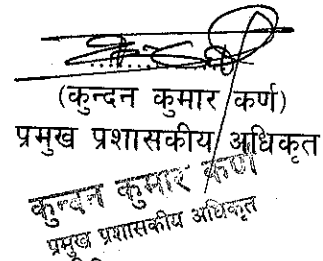 (कुन्दन कुमार कर्ण)
प्रमुख प्रशासकीय अधिकृत
कुन्दन कुमार कर्ण
प्रमुख प्रशासकीय अधिकृत